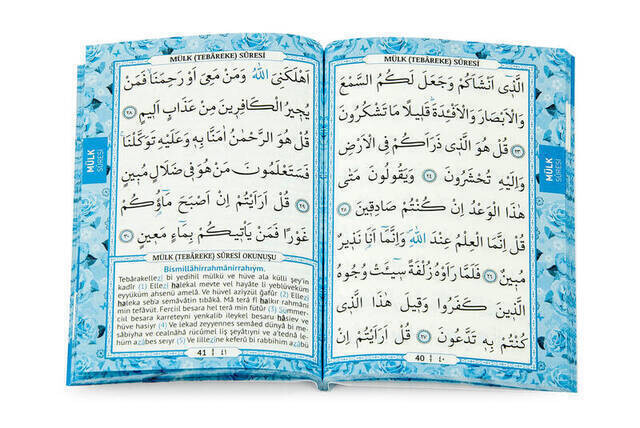 MÜLK (TEBÂREKE) SÛRESİ
الَّذ۪ٓي اَنْشَاَكُمْ وَجَعَلَ لَكُمُ السَّمْعَ
وَالْاَبْصَارَ وَالْاَفْـِٔدَةَ قَل۪يلًا مَا تَشْكُرُونَ
﴿٢٣﴾ قُلْ هُوَ الَّذ۪ي ذَرَاَكُمْ فِي الْاَرْضِ
وَاِلَيْهِ تُحْشَرُونَ ﴿٢٤﴾ وَيَقُولُونَ مَتٰى
هٰذَا الْوَعْدُ اِنْ كُنْتُمْ صَادِق۪ينَ ﴿٢٥﴾
قُلْ اِنَّمَا الْعِلْمُ عِنْدَ اللّٰهِ وَاِنَّمَٓا اَنَا نَذ۪يرٌ
مُب۪ينٌ ﴿٢٦﴾ فَلَمَّا رَاَوْهُ زُلْفَةً س۪ٓيـَٔتْ وُجُوهُ
الَّذ۪ينَ كَفَرُوا وَق۪يلَ هٰذَا الَّذ۪ي
كُنْتُمْ بِه۪ تَدَّعُونَ ﴿٢٧﴾ قُلْ اَرَاَيْتُمْ اِنْ
40 ٤٠
MÜLK SÛRESİ
MÜLK (TEBÂREKE) SÛRESİ
اَهْلَكَنِيَ اللّٰهُ وَمَنْ مَعِيَ اَوْ رَحِمَنَا فَمَنْ
يُج۪يرُ الْكَافِر۪ينَ مِنْ عَذَابٍ اَل۪يمٍ ﴿٢٨﴾
قُلْ هُوَ الرَّحْمٰنُ اٰمَنَّا بِه۪ وَعَلَيْهِ تَوَكَّلْنَا
فَسَتَعْلَمُونَ مَنْ هُوَ ف۪ي ضَلَالٍ مُب۪ينٍ
﴿٢٩﴾ قُلْ اَرَاَيْتُمْ اِنْ اَصْبَحَ مَٓاؤُ۬كُمْ
غَوْرًا فَمَنْ يَأْت۪يكُمْ بِمَٓاءٍ مَع۪ينٍ ﴿٣٠﴾
MÜLK (TEBÂREKE) SÛRESİ OKUNUŞU
Bismillâhirrahmânirrahıym.
Tebârakellezî bi yedihil mülkü ve hüve ala külli şey'in
kadîr (1) Ellezî halekal mevte vel hayâte li yeblüveküm
eyyuküm ahsenü amelâ. Ve hüvel aziyzül ğafûr (2) Ellezî
haleka seb'a semâvâtin tıbâkâ. Mâ terâ fî halkır rahmâni
min tefâvüt. Ferciıl besara hel terâ min fütûr (3) Sümmer-
ciıl besara karreteyni yenkalib ileykel besaru hâsiev ve
hüve hasiyr (4) Ve lekad zeyyennes semâed dünyâ bi me-
sâbiyha ve cealnâhâ rücûmel liş şeyâtıyni ve a'tednâ le-
hüm azâbes seıyr (5) Ve lillezîne keferû bi rabbihim azâbü
41 ٤١
MÜLK SÛRESİ